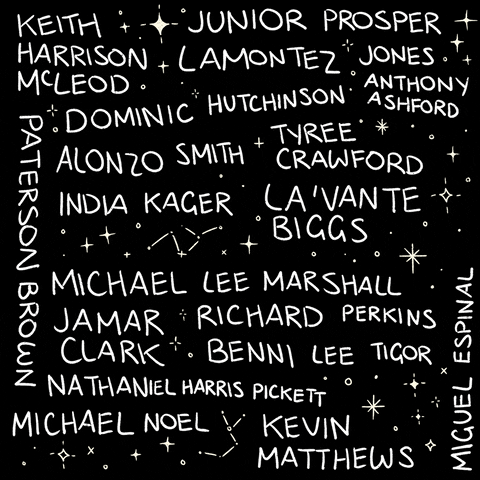 KEITH HARRISON McLEOD
JUNIOR PROSPER
LAMONTEZ JONES
ANTHONY ASHFORD
DOMINIC HUTCHINSON
PATERSON BROWN
ALONZO SMITH
TYREE CRAWFORD
INDIA KAGER
LA'VANTE BIGGS
MICHAEL LEE MARSHALL
JAMAR CLARK
RICHARD PERKINS
BENNI LEE TIGOR
NATHANIEL HARRIS PICKETT
MIGUEL ESPINAL
MICHAEL NOEL
KEVIN MATTHEWS